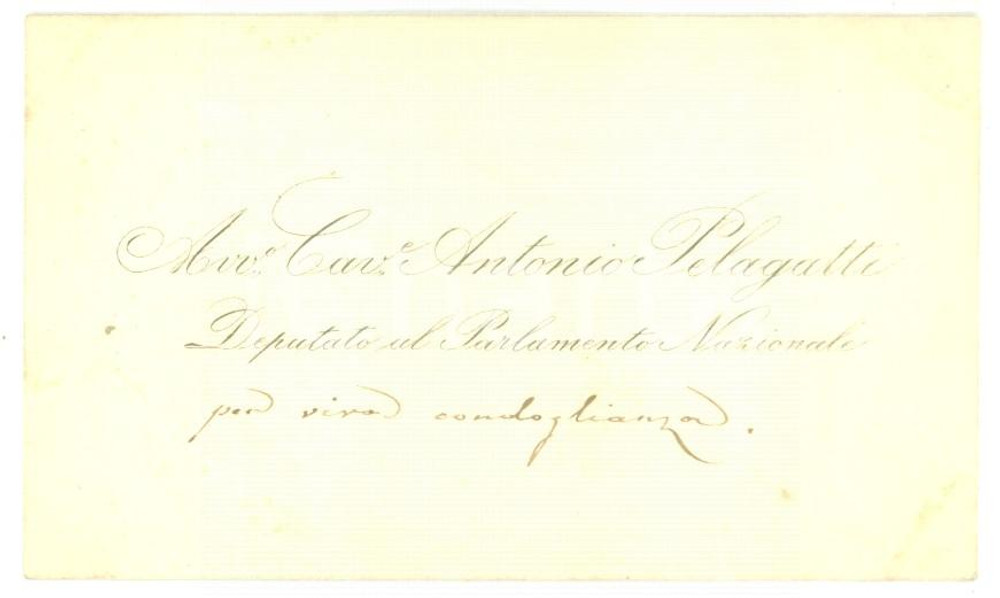 Avv.º Cav.ᵉ Antonio Pelagatti
Deputato al Parlamento Nazionale
per viva condoglianza.